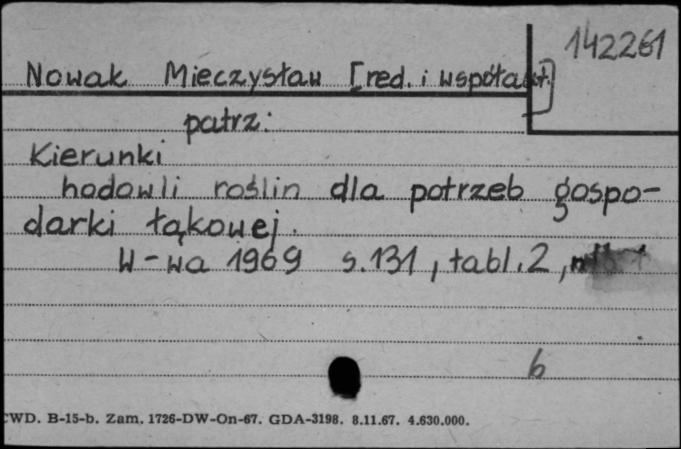 142261
Nowak Mieczysław [red. i współaut.]
patrz:
Kierunki
hodowli roślin dla potrzeb gospo-
darki łąkowej.
W-wa 1969 s.131, tabl.2,
6
CWD. B-15-b. Zam. 1726-DW-On-67. GDA-3198. 8.11.67. 4.630.000.